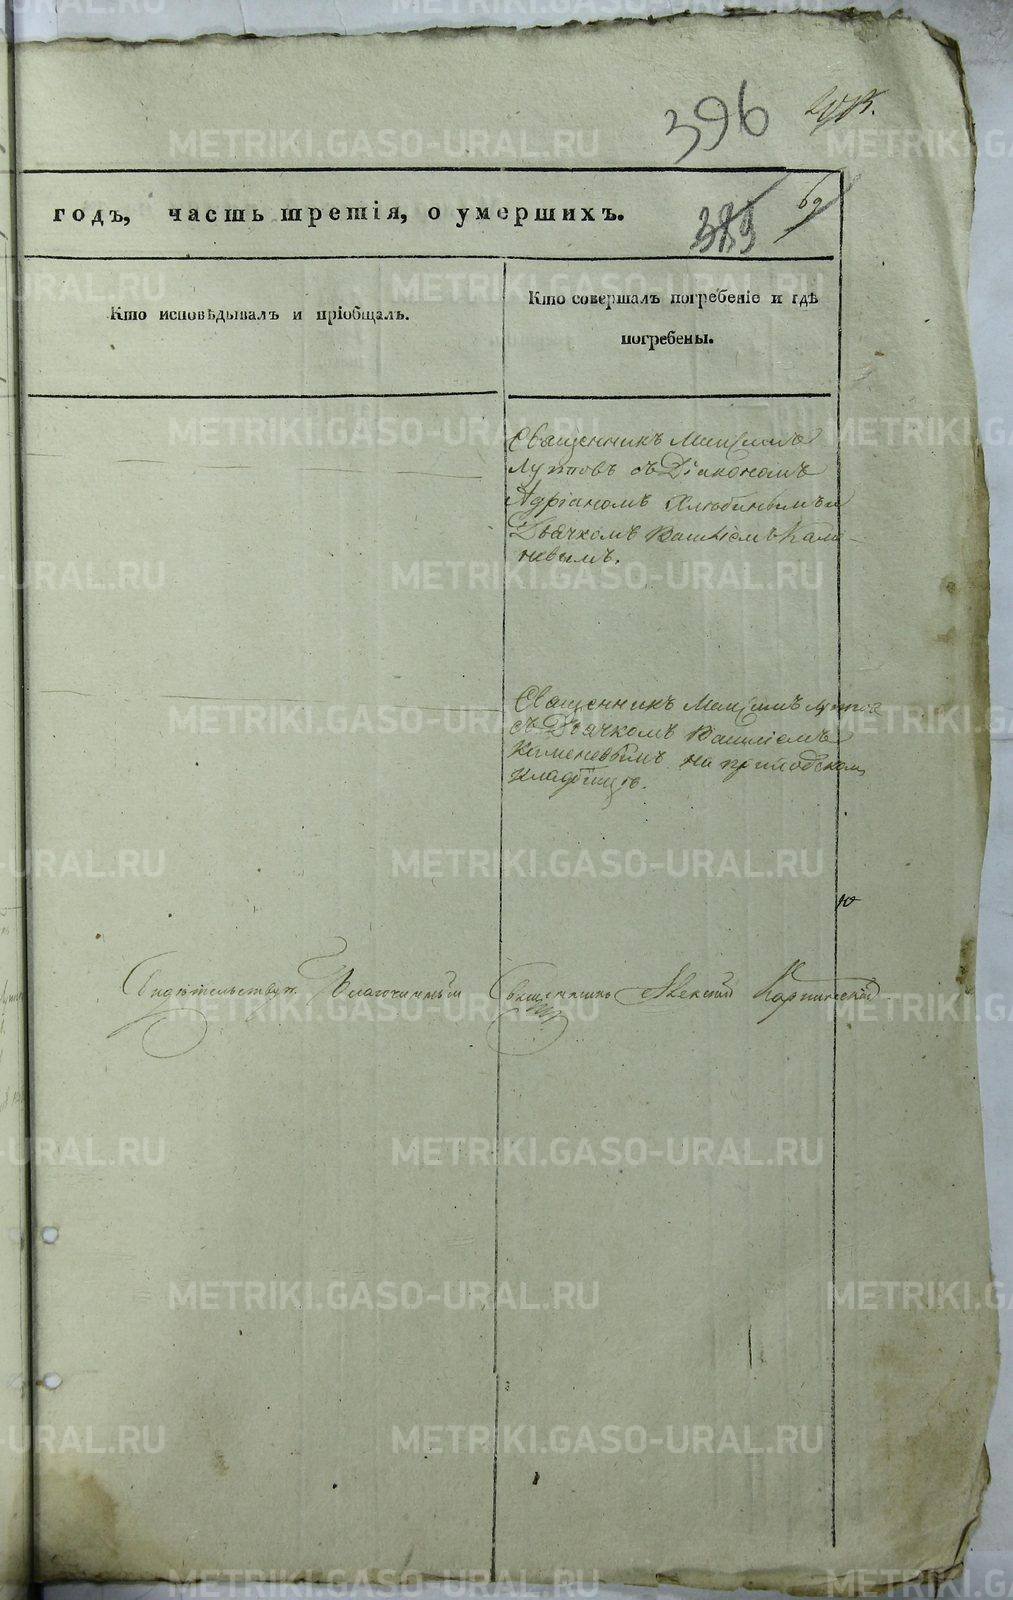 396
годъ, часть третія, о умершихъ.
383
69
Кто исповѣдывалъ и пріобщалъ.
Кто совершалъ погребеніе и гдѣ
погребены.
Священникъ Максимъ
съ Діакономъ
Адріаномъ Хлюбинымъ и
Дьячкомъ Василіемъ Каме-
невымъ.
Священникъ Максимъ
съ Дьячкомъ Василіемъ
Каменевымъ на приходскомъ
кладбищѣ.
Свидѣтельствуетъ Благочинный Священникъ Алексій Карпинскій
METRIKI.GASO-URAL.RU